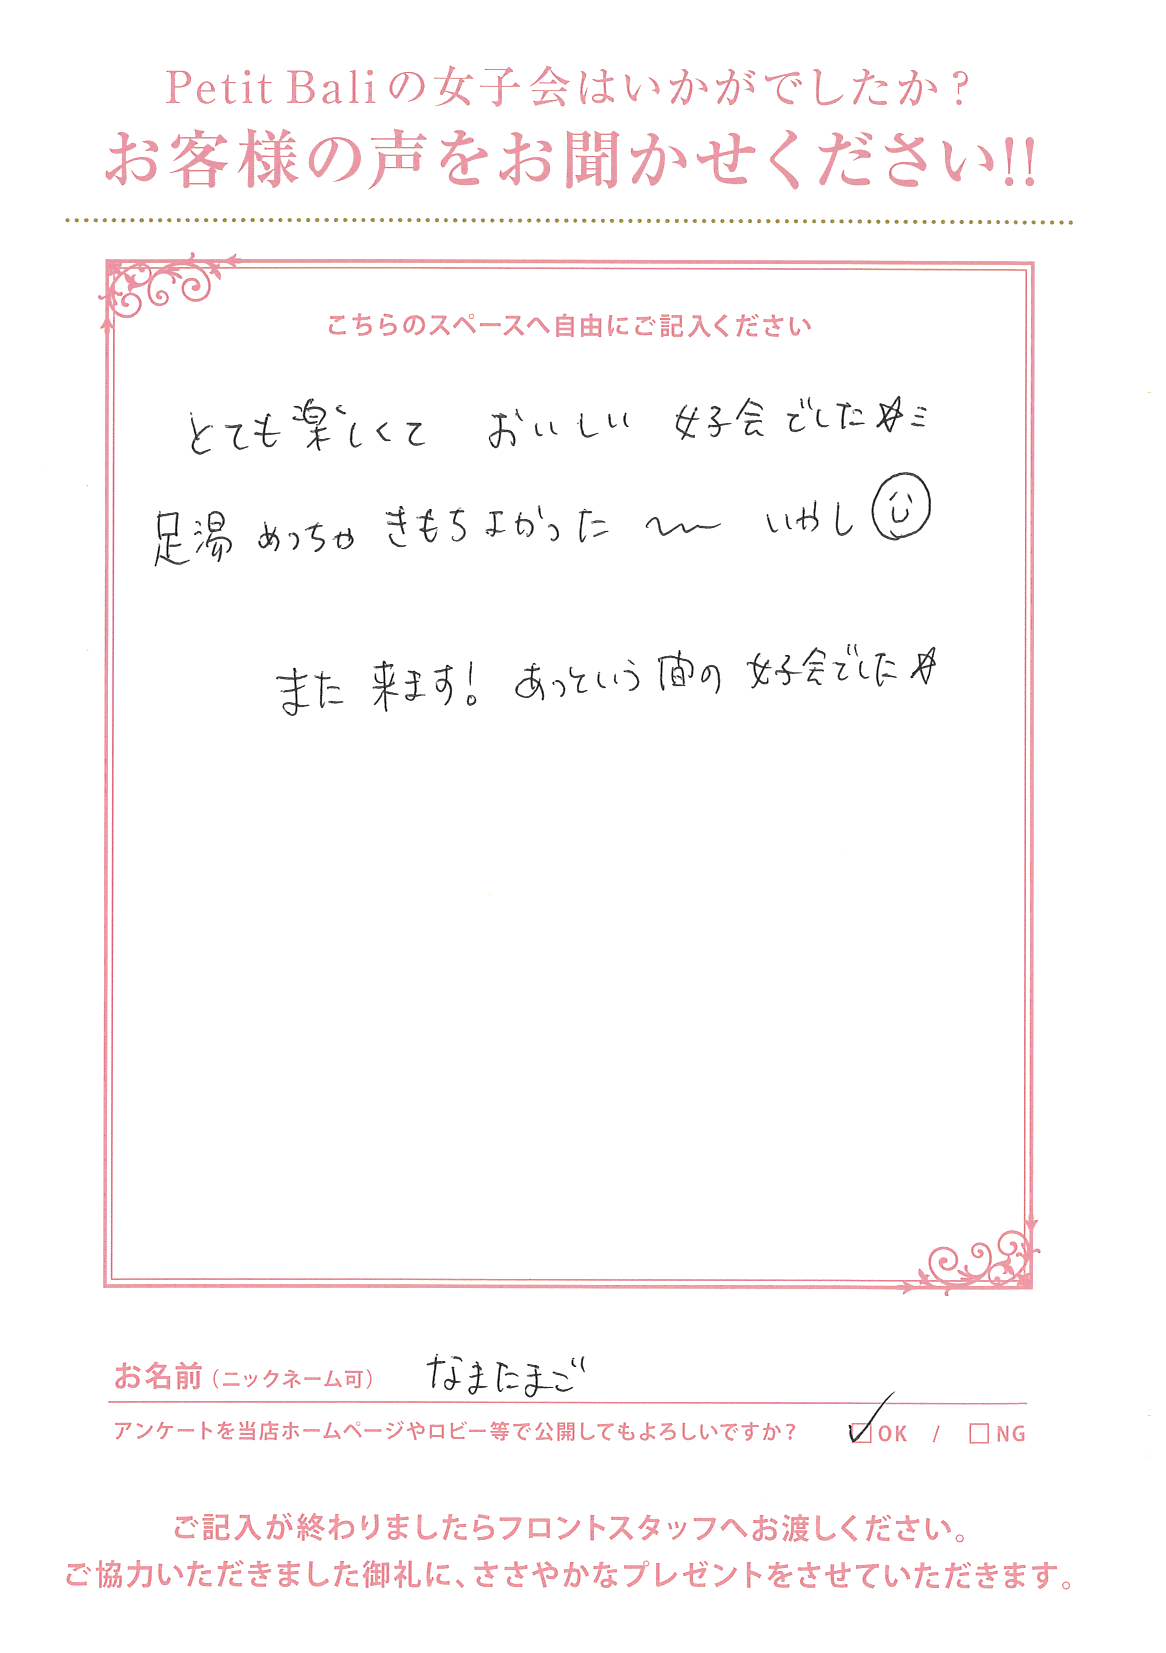 Petit Baliの女子会はいかがでしたか？
お客様の声をお聞かせください!!
こちらのスペースへ自由にご記入ください
とても楽しくて おいしい 女子会でした☆ミ
足湯 めっちゃ きもちよかった 〜〜 いやし
また来ます! あっという間の 女子会でした☆
お名前（ニックネーム可） なまたまご
アンケートを当店ホームページやロビー等で公開してもよろしいですか？ ☑OK / □NG
ご記入が終わりましたらフロントスタッフへお渡しください。
ご協力いただきました御礼に、ささやかなプレゼントをさせていただきます。